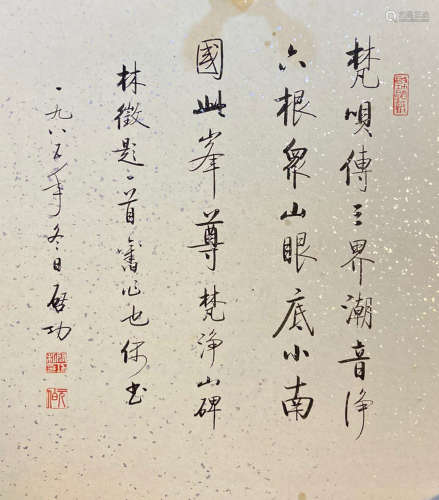 梵唄傳三界潮音浄
六根衆山眼底小南
國此峯尊梵浄山碑
林徵題一首舊作也偶書
一九八五年冬日啓功